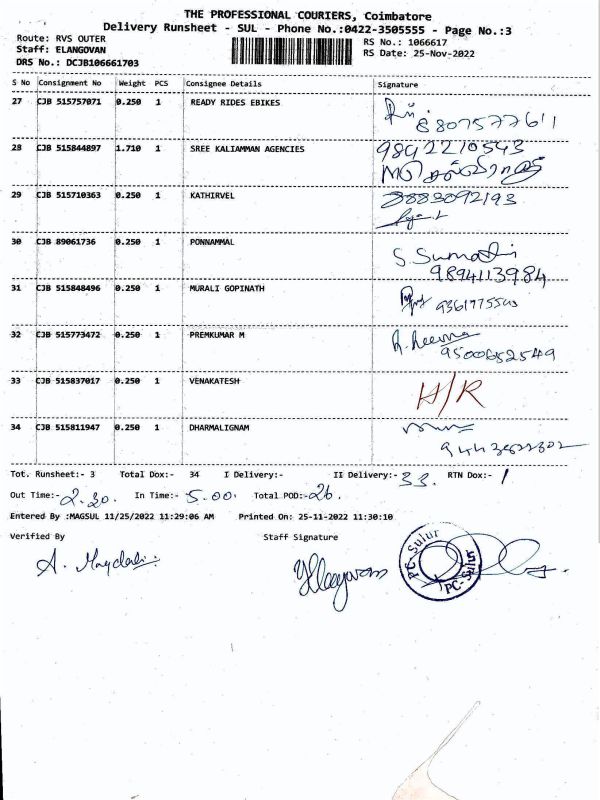 THE PROFESSIONAL COURIERS, Coimbatore
Delivery Runsheet - SUL - Phone No.:0422-3505555 - Page No.:3
Route: RVS OUTER
RS No.: 1066617
Staff: ELANGOVAN
RS Date: 25-Nov-2022
DRS No.: DCJB106661703
S No Consignment No Weight PCS Consignee Details Signature
27 CJB 515757071 0.250 1 READY RIDES EBIKES
8807577611
28 CJB 515844897 1.710 1 SREE KALIAMMAN AGENCIES 9842210543
29 CJB 515710363 0.250 1 KATHIRVEL 8883092193
30 CJB 89061736 0.250 1 PONNAMMAL S. Sumathi
9894113984
31 CJB 515848496 0.250 1 MURALI GOPINATH
32 CJB 515773472 0.250 1 PREMKUMAR M
9500652549
33 CJB 515837017 0.250 1 VENAKATESH H/R
34 CJB 515811947 0.250 1 DHARMALIGNAM
Tot. Runsheet:- 3 Total Dox:- 34 I Delivery:- II Delivery:- 33. RTN Dox:- 1
Out Time:- 2.30. In Time:- 5.00. Total POD:- 26.
Entered By :MAGSUL 11/25/2022 11:29:06 AM Printed On: 25-11-2022 11:30:10
Verified By Staff Signature
PC-Sulur
PC-Sulur